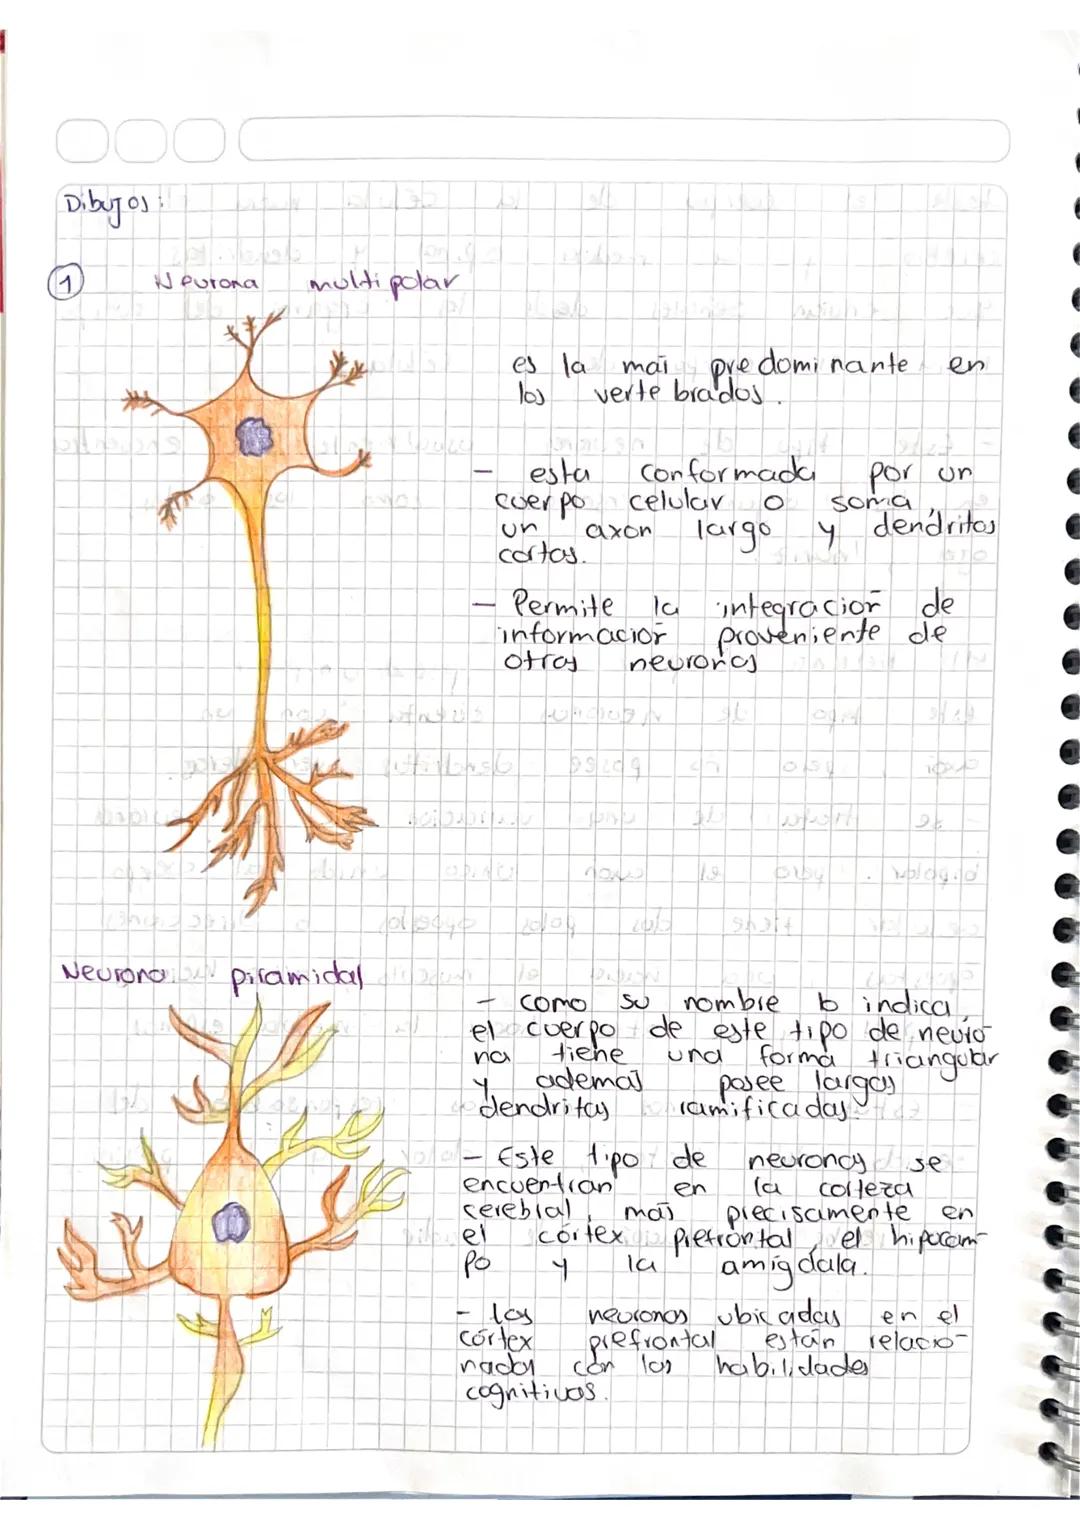 Dibujos:
1 Neurona multipolar
es la más predominante en
los vertebrados.
- esta conformada por un
cuerpo celular o soma,
un axon largo y dendritas
cortas.
- Permite la integración de
información proveniente de
otras neuronas
Neurona piramidal
- como su nombre lo indica,
el cuerpo de este tipo de neuro-
na tiene una forma triangular
y además posee largas
dendritas ramificadas.
- Este tipo de neuronas se
encuentran en la corteza
cerebral, más precisamente en
el córtex prefrontal, el hipocam-
po y la amígdala.
- las neuronas ubicadas en el
córtex prefrontal están relacio-
nadas con las habilidades
cognitivas.